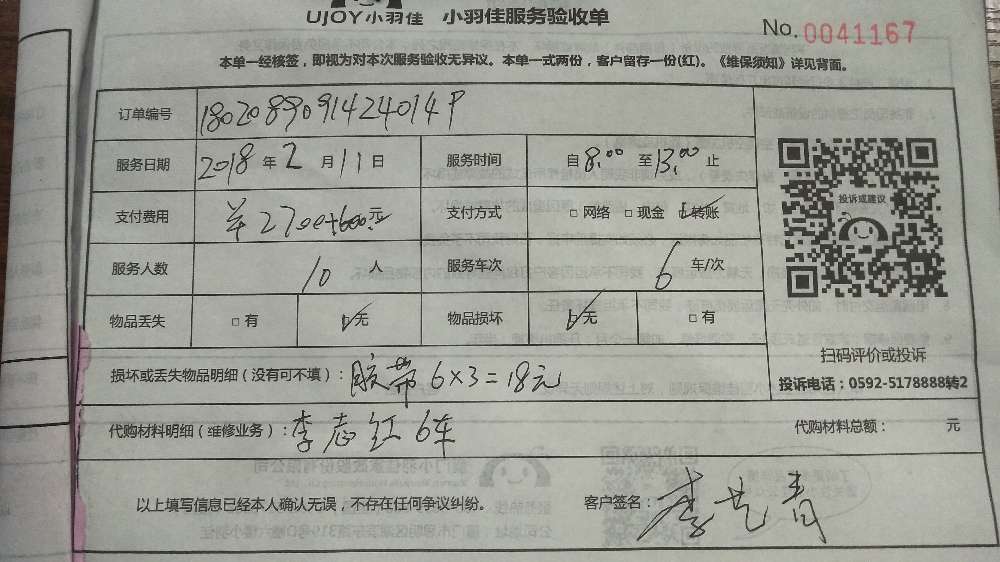 UJOY小羽佳 小羽佳服务验收单
No. 0041167
本单一经核签，即视为对本次服务验收无异议。本单一式两份，客户留存一份(红)。《维保须知》详见背面。
订单编号 1802089091424014P
服务日期 2018 年 2 月 11 日 服务时间 自 8:00 至 13:00 止
支付费用 ¥2700+600元 支付方式 □ 网络 □ 现金 ☑ 转账
服务人数 10 人 服务车次 6 车/次
物品丢失 □ 有 ☑ 无 物品损坏 ☑ 无 □ 有
损坏或丢失物品明细（没有可不填）：胶带 6×3=18元
代购材料明细（维修业务）：李志红 6车 代购材料总额： 元
以上填写信息已经本人确认无误，不存在任何争议纠纷。 客户签名：
投诉或建议
扫码评价或投诉
投诉电话：0592-5178888转2